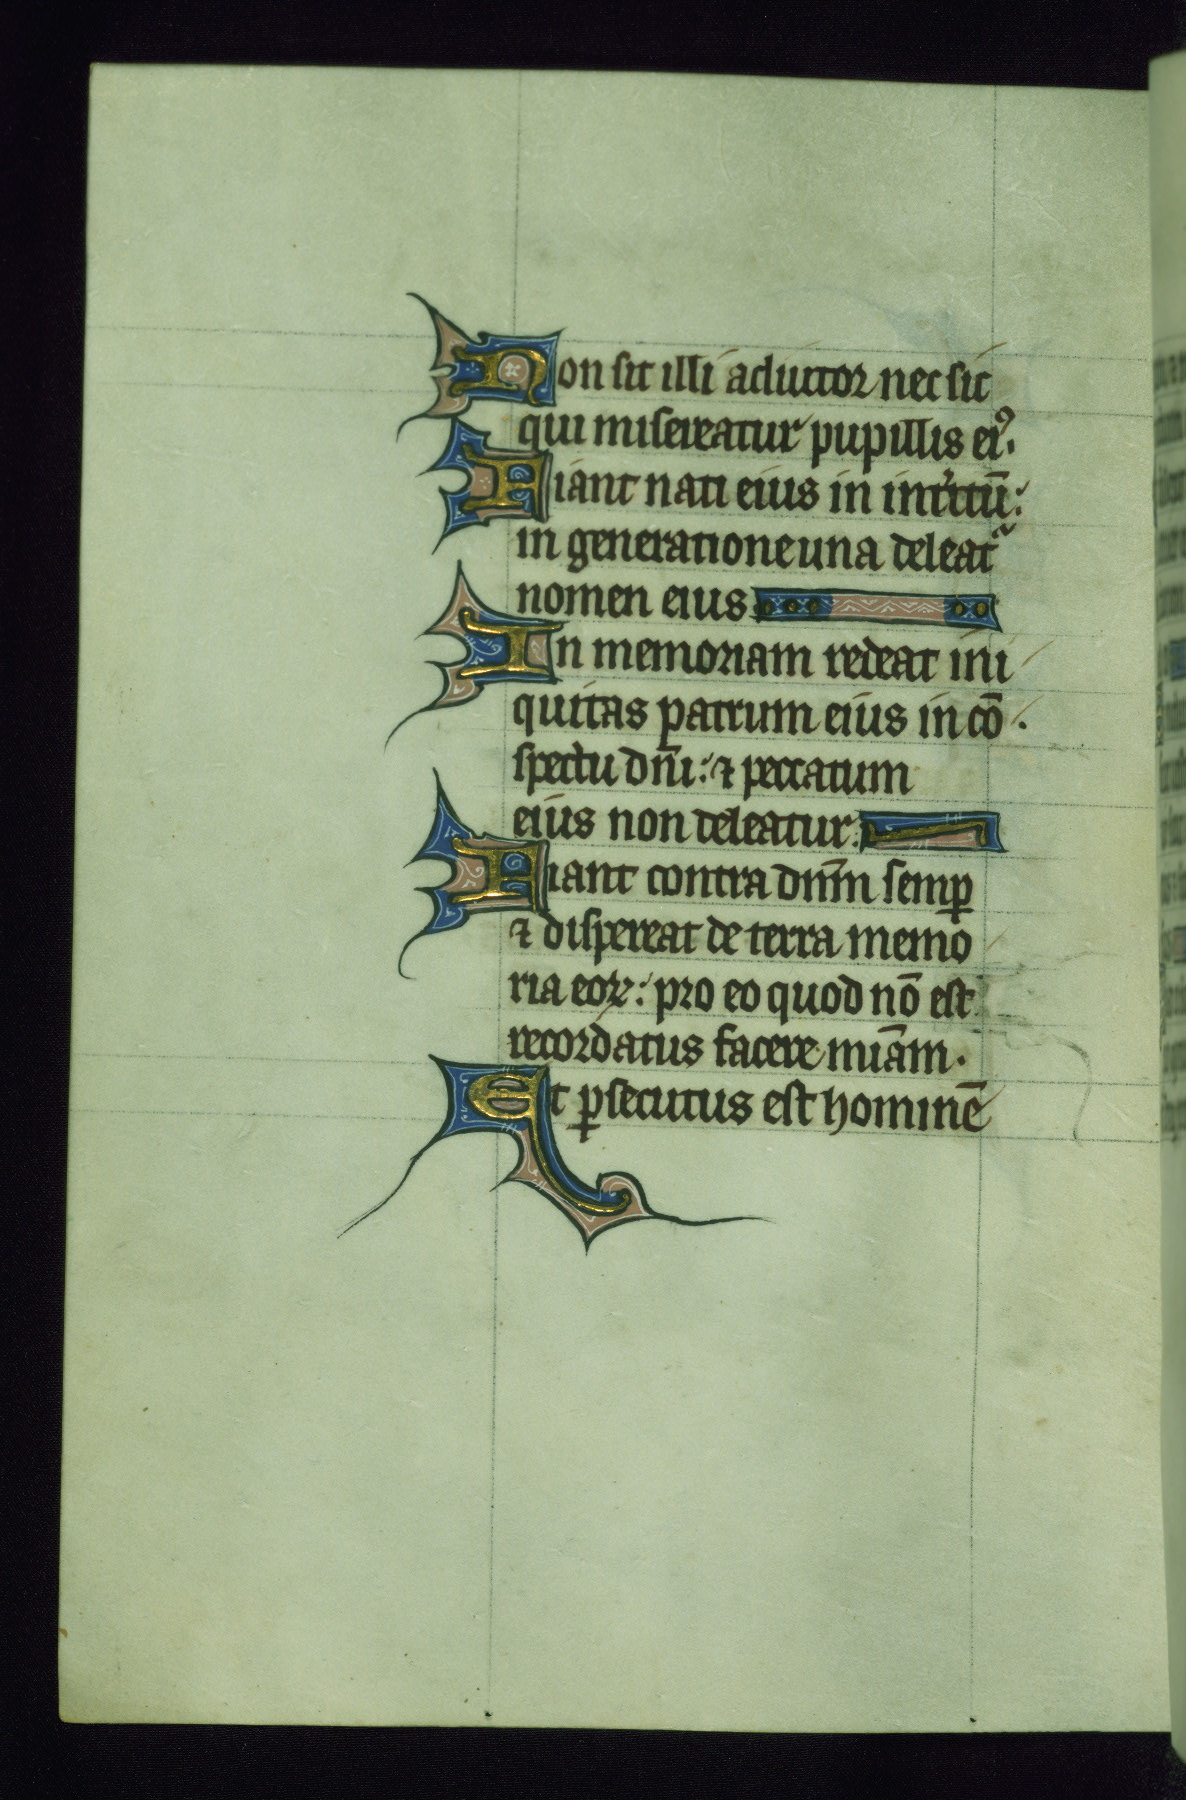 Non sit illi adiutor nec sit
qui misereatur pupillis eiꝰ.
Fiant nati eius in int'itū:
in generatione una deleat᷑
nomen eius
In memoriam redeat ini
quitas patrum eius in cō
spectu dn̄i: ⁊ peccatum
eius non deleatur.
Fiant contra dnm̄ semꝑ
⁊ dispereat de terra memo
ria eoꝝ: pro eo quod nō est
recordatus facere miām.
Et ꝑsecutus est hominē